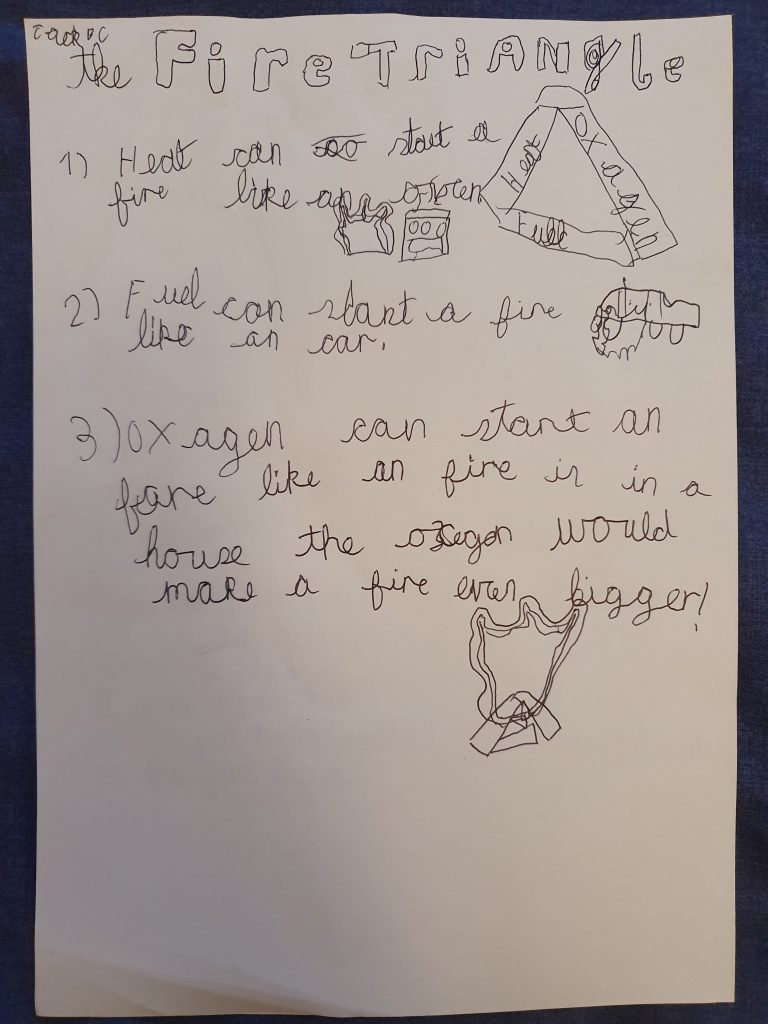 the Fire TriANgle
1) Heat can start a
fire like an
Heat
Oxagen
Fuel
2) Fuel can start a fire
like an car.
3) Oxagen can start an
fare like an fire is in a
house the oxegon would
make a fire even bigger!